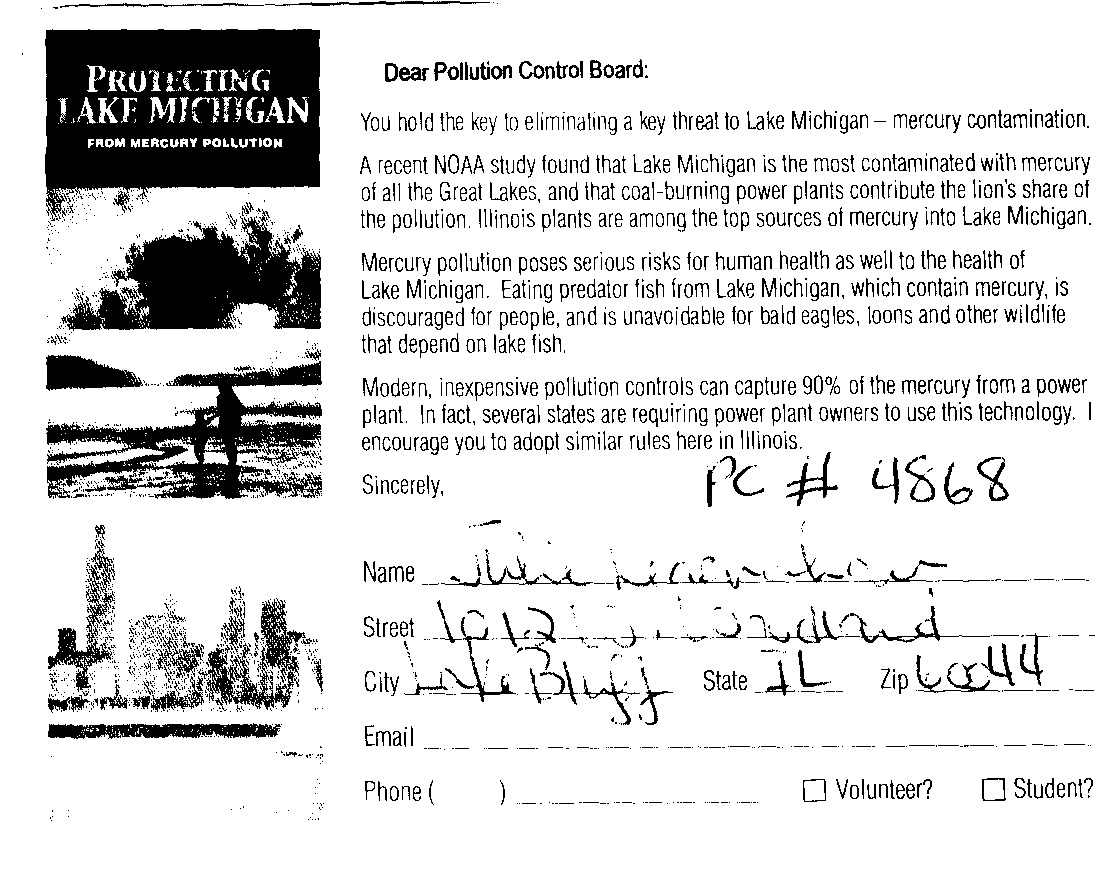 PROTECTING
LAKE MICHIGAN
FROM MERCURY POLLUTION
Dear Pollution Control Board:
You hold the key to eliminating a key threat to Lake Michigan – mercury contamination.
A recent NOAA study found that Lake Michigan is the most contaminated with mercury
of all the Great Lakes, and that coal-burning power plants contribute the lion's share of
the pollution. Illinois plants are among the top sources of mercury into Lake Michigan.
Mercury pollution poses serious risks for human health as well to the health of
Lake Michigan. Eating predator fish from Lake Michigan, which contain mercury, is
discouraged for people, and is unavoidable for bald eagles, loons and other wildlife
that depend on lake fish.
Modern, inexpensive pollution controls can capture 90% of the mercury from a power
plant. In fact, several states are requiring power plant owners to use this technology. I
encourage you to adopt similar rules here in Illinois.
Sincerely,
PC # 4868
Name Julie
Street
City Lake Bluff State IL Zip 60044
Email
Phone ( ) Volunteer? Student?